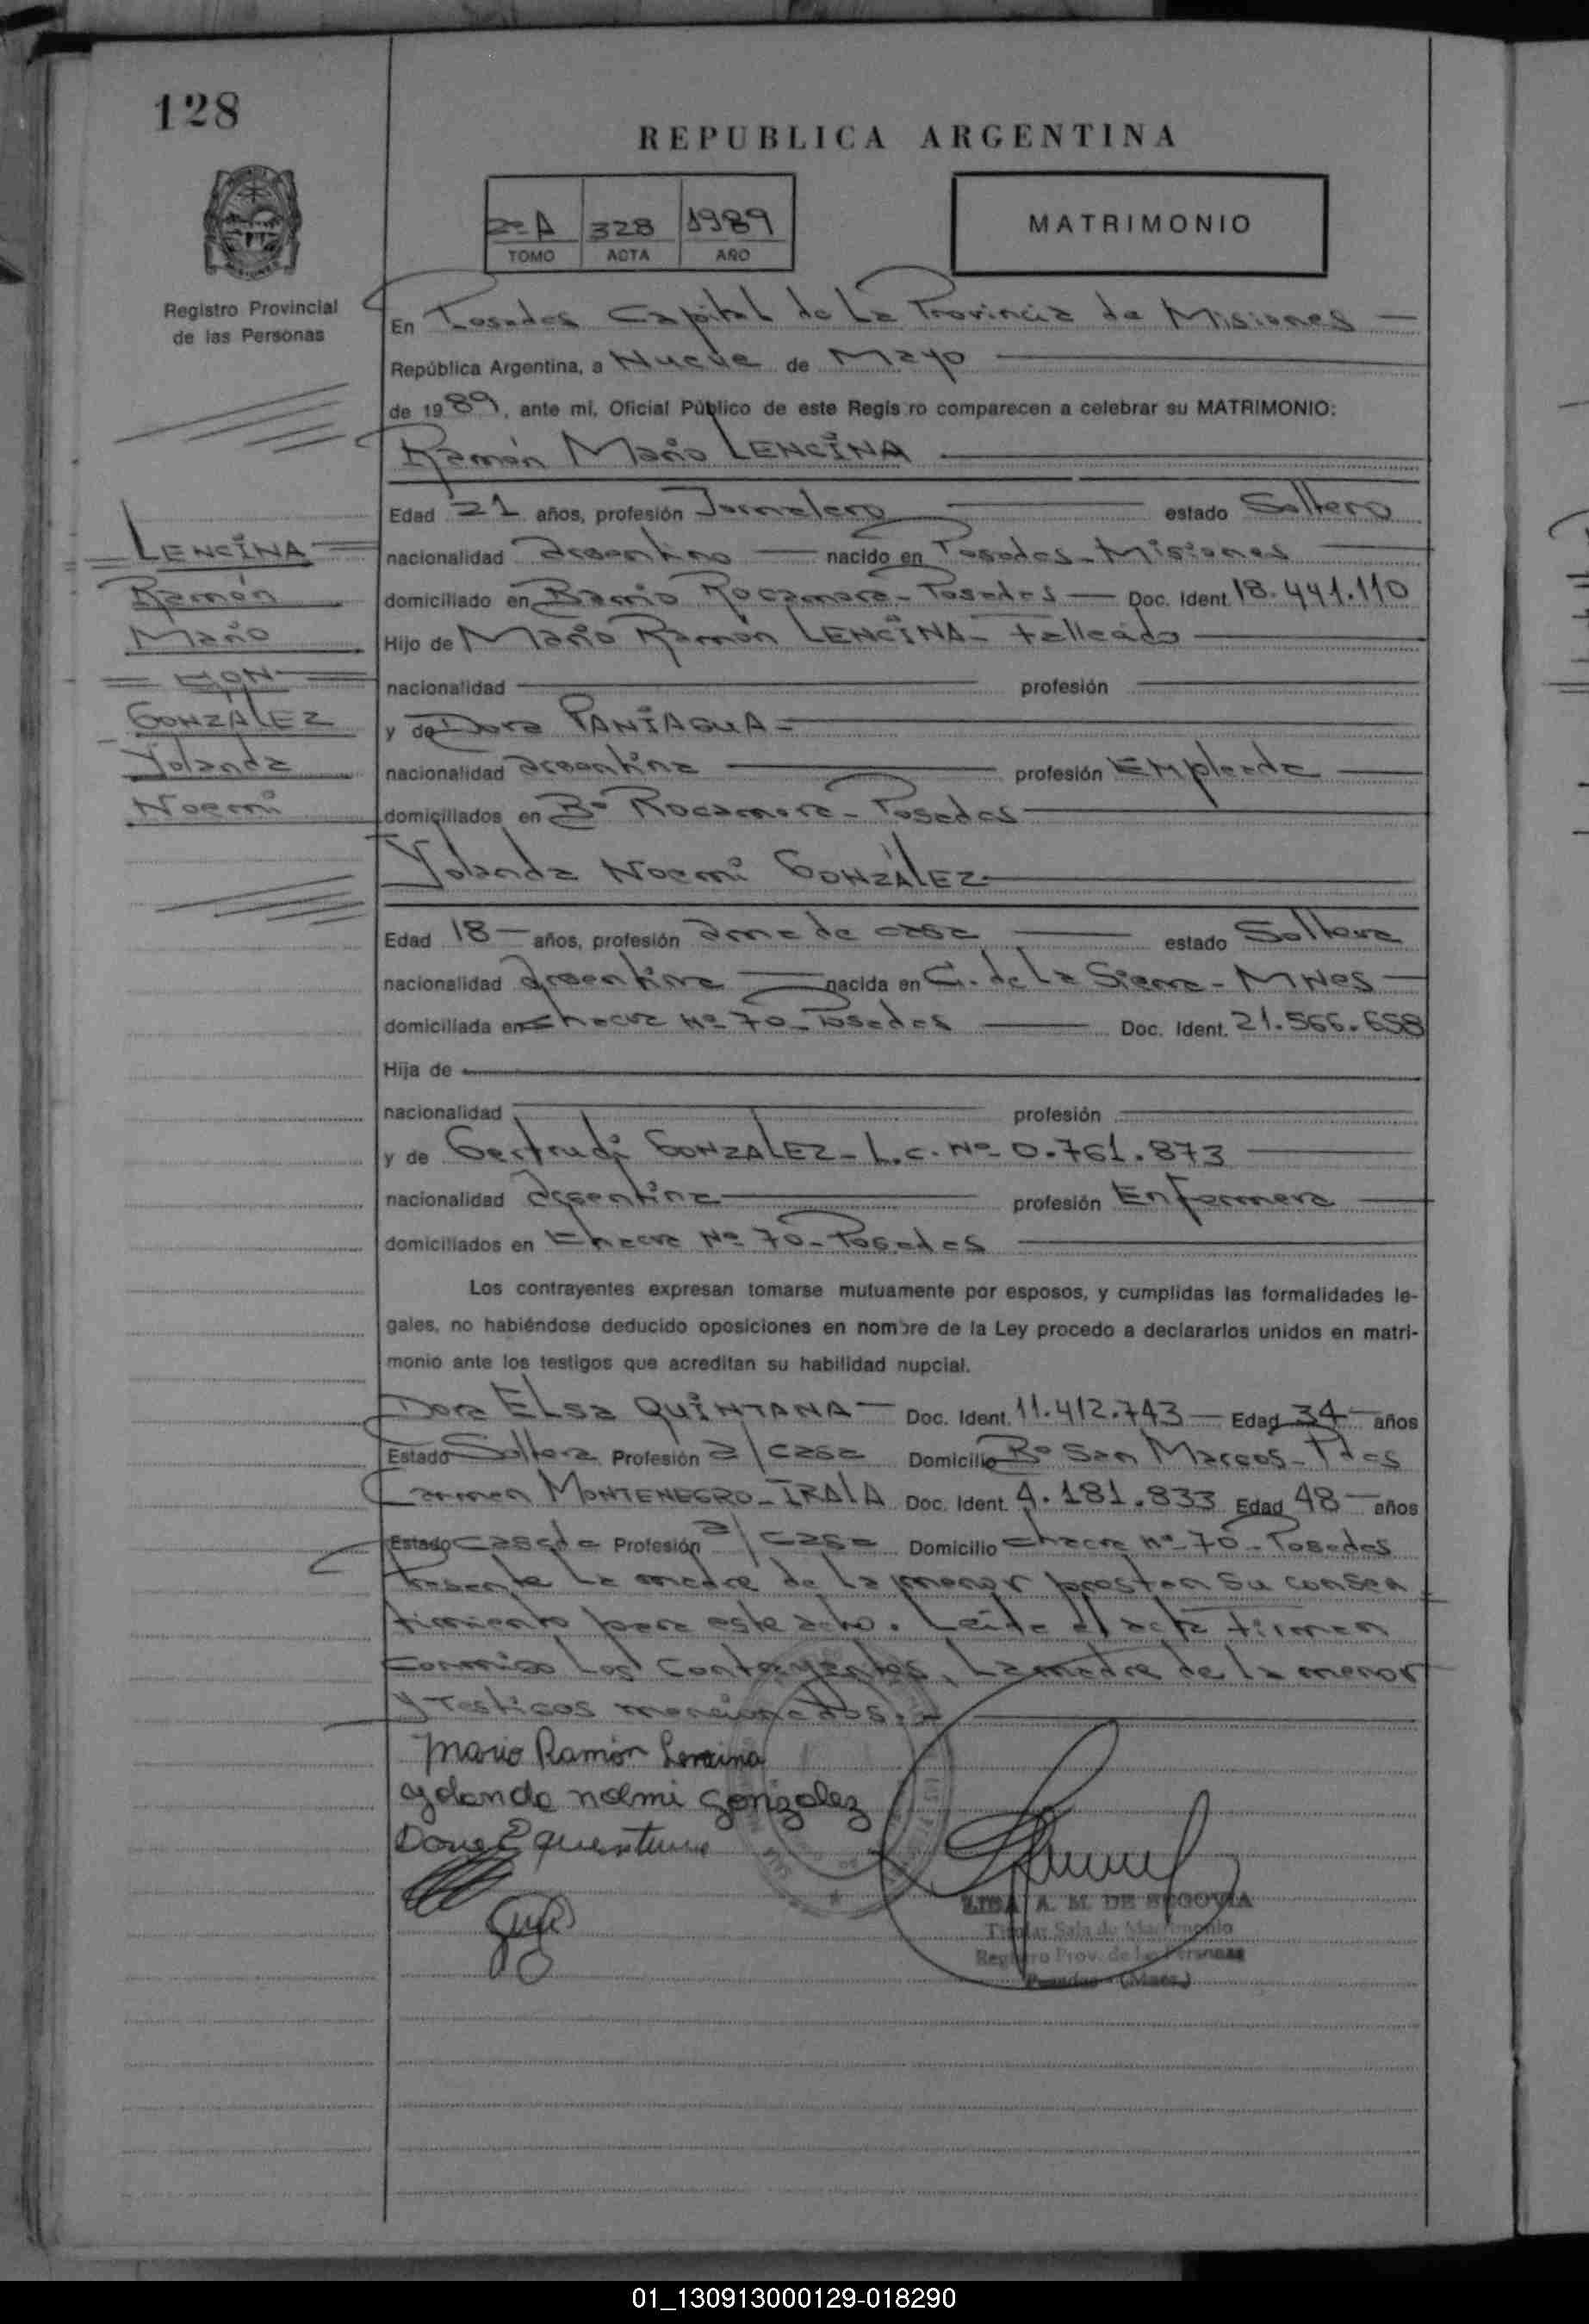 128
REPUBLICA ARGENTINA
2º A 328 1989
TOMO ACTA AÑO
MATRIMONIO
Registro Provincial
de las Personas
En Posadas Capital de La Provincia de Misiones
República Argentina, a Nueve de Mayo
de 1989, ante mi, Oficial Público de este Regis ro comparecen a celebrar su MATRIMONIO:
Ramón Mario LENCINA
Edad 21 años, profesión Jornalero estado Soltero
nacionalidad argentino nacido en Posadas - Misiones
domiciliado en Barrio Rocamora - Posadas Doc. Ident. 18.441.110
Hijo de Mario Ramón LENCINA - Fallecido
nacionalidad profesión
y de Dora PANIAGUA
nacionalidad argentina profesión Empleada
domiciliados en Bº Rocamora - Posadas
LENCINA
Ramón
Mario
CON
GONZÁLEZ
Yolanda
Noemi
Yolanda Noemi GONZÁLEZ
Edad 18 años, profesión ama de casa estado Soltera
nacionalidad argentina nacida en C. de la Sierra - MNes
domiciliada en Chacra Nº 70 - Posadas Doc. Ident. 21.566.658
Hija de
nacionalidad profesión
y de Gertrudi GONZALEZ - L.C. Nº 0.761.873
nacionalidad argentina profesión Enfermera
domiciliados en Chacra Nº 70 - Posadas
Los contrayentes expresan tomarse mutuamente por esposos, y cumplidas las formalidades le-
gales, no habiéndose deducido oposiciones en nombre de la Ley procedo a declararlos unidos en matri-
monio ante los testigos que acreditan su habilidad nupcial.
Dora Elsa QUINTANA Doc. Ident. 11.412.743 Edad 34 años
Estado Soltera Profesión a/casa Domicilio Bº San Marcos - Pdas
Carmen MONTENEGRO - IRALA Doc. Ident. 4.181.833 Edad 48 años
Estado casada Profesión a/casa Domicilio chacra Nº 70 - Posadas
Presente La madre de la menor prestan su consen
timiento para este acto. Leida el acta firman
conmigo Los Contrayentes, La madre de la menor
y testigos mencionados.
Mario Ramón Lencina
yolanda noemi gonzalez
LISA A. M. DE SEGOVIA
Titular Sala de Matrimonio
Registro Prov. de las Personas
Posadas - (Mnes.)
01_130913000129-018290